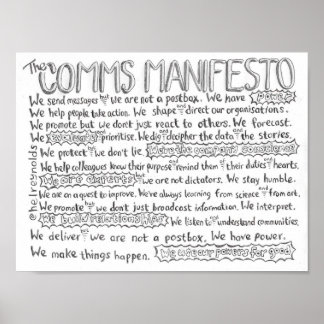 The COMMS MANIFESTO
We send messages but we are not a postbox. We have power.
We help people take action. We shape and direct our organisations.
We promote but we don't just react to others. We forecast.
We and prioritise. We dig and decipher the data and the stories.
We protect but we don't lie.
We help colleagues know their purpose and remind them of their duties and hearts.
We are experts but we are not dictators. We stay humble.
We are on a quest to improve. We're always learning from science and from art.
We promote but we don't just broadcast information. We interpret.
We build relationships. We listen to and understand communities.
We deliver but we are not a postbox. We have power.
We make things happen. We use our powers for good.
@helreynolds